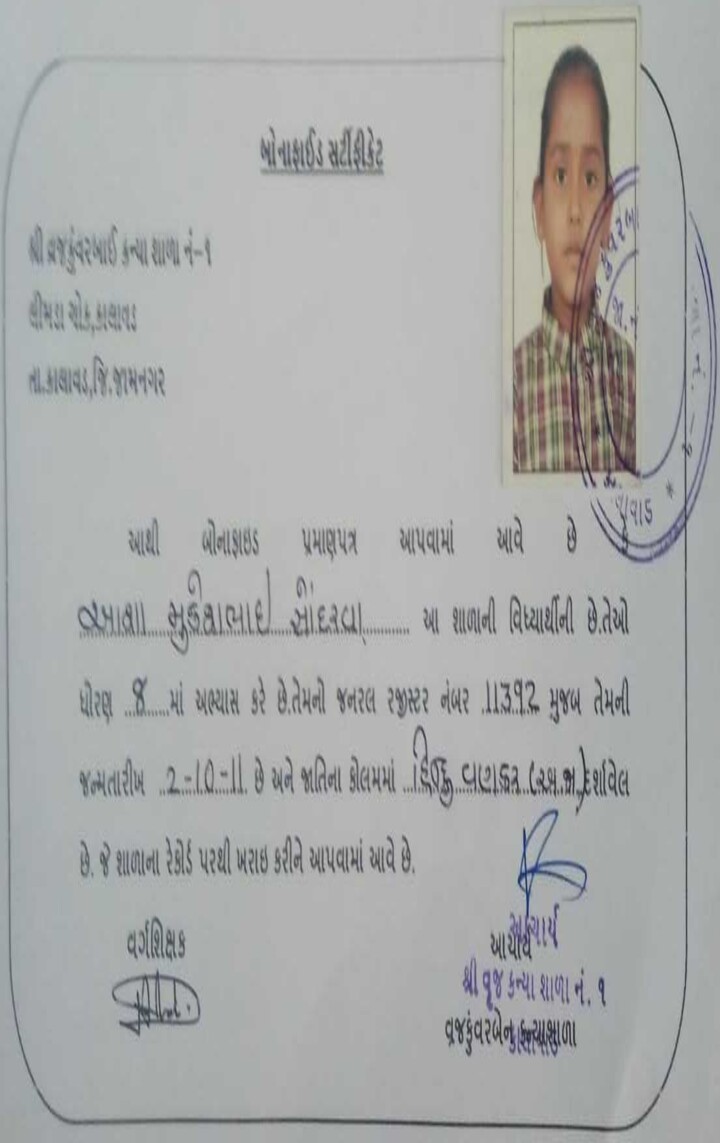 બોનાફાઈડ સર્ટીફીકેટ
શ્રી વ્રજકુંવરબાઈ કન્યા શાળા નં-૧
લીમડા ચોક,કાલાવડ
તા.કાલાવડ,જિ.જામનગર
આથી બોનાફાઇડ પ્રમાણપત્ર આપવામાં આવે છે કે
મુકેશભાઈ સોંદરવા આ શાળાની વિધ્યાર્થીની છે.તેઓ
ધોરણ 8 માં અભ્યાસ કરે છે.તેમનો જનરલ રજીસ્ટર નંબર 11392 મુજબ તેમની
જન્મતારીખ 2-10-11 છે અને જાતિના કોલમમાં હિન્દુ વણકર (અ.જા) દર્શાવેલ
છે. જે શાળાના રેકોર્ડ પરથી ખરાઇ કરીને આપવામાં આવે છે.
વર્ગશિક્ષક
આચાર્ય
આચાર્ય
શ્રી વ્રજ કન્યા શાળા નં. ૧
વ્રજકુંવરબેન કન્યાશાળા